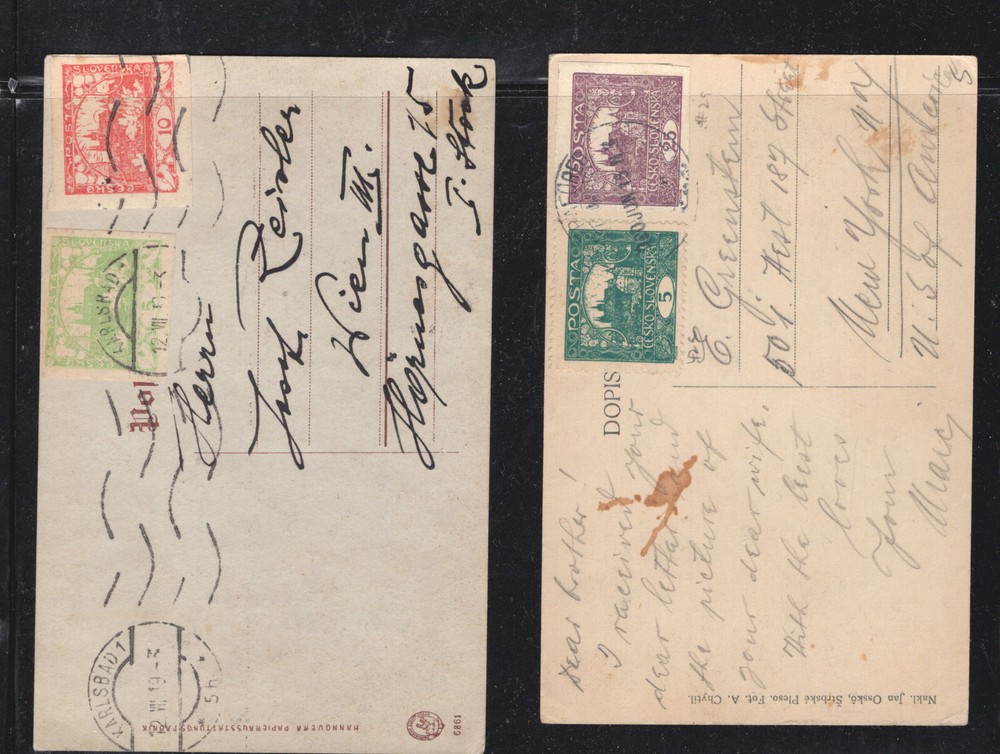 SLOVENSKÁ
POSTA
10
ČESKO
SLOVENSKÁ
KARLSBAD
12 VII 19 - 3
Herrn
Reisler
Wien III.
Hörnesgasse 15
I. Stock
KARLSBAD 1
VII 19 - 3
HANNOVERA PAPIERAUSSTATTUNGSFABRIK
6861
POSTA
25
ČESKO-SLOVENSKÁ
POSTA
5
ČESKO-SLOVENSKÁ
E. Greenstein
504 West 187 Street
New York
U. S. of America
DOPIS
Dear brother!
I received your
dear letter and
the picture of
your dear wife.
With the best
loves
Your
Nakl. Jan Osskó, Štrbské Pleso. Fot. A. Chytil.